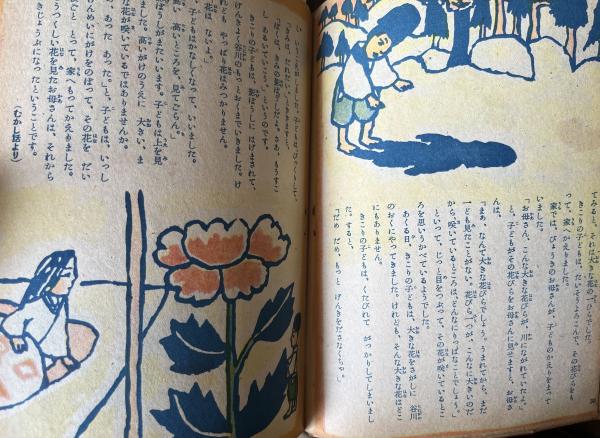 てみると、それは大きな花の一ひらでした。
きこりの子どもは、たいそうよろこんで、その花びらをも
って、家へかえりました。
家では、びょうきのお母さんが、子どものかえりをまって
いました。
「お母さん、こんな大きな花びらが、川にながれていたよ。」
と、子どもがその花びらをお母さんに見せますと、お母さ
んは、
「まあ、なんて大きな花びらでしょう。うまれてから、まだ
一ども見たことがない。花びら一つが、こんなに大きいのだ
から、咲いているところは、どんなにりっぱなことでしょう。」
といって、じっと目をつぶって、その花が咲いているとこ
ろを思いうかべているようでした。
あくる日、きこりの子どもは、大きな花をさがしに 谷川
のおくにやってきました。けれども、そんな大きな花はどこ
にもありません。
きこりの子どもは、くたびれて がっかりしてしまいまし
た。すると、
「だめ だめ、もっと げんきをださなくちゃ。」
い」というこえがしました。子どもは、びっくりして、
「きみは、だれだい。」とききますと、
「ぼくは、きみの影ぼうしだよ。さあ、もうすこ
し、あるいてごらん。」というのです。
きこりの子どもは、影ぼうしに はげまされて、
げんきよく谷川のもっとおくまでいきました。け
れども、やっぱり花はみつかりません。
「花はないよ。」
と、子どもはかなしくなって、いいました。
「高いところを、見てごらん。」
ぼうしがまたいいます。子どもは上を見
ました。高いがけのうえに 大きい、ま
な花が咲いているではありませんか。
「あった あった。」と、子どもは、いっし
んめいにがけをのぼって、その花を だい
ごと とって、家へもってかえりました。
うつくしい花を見たお母さんは、それから
きじょうぶになったということです。
（むかし話より）